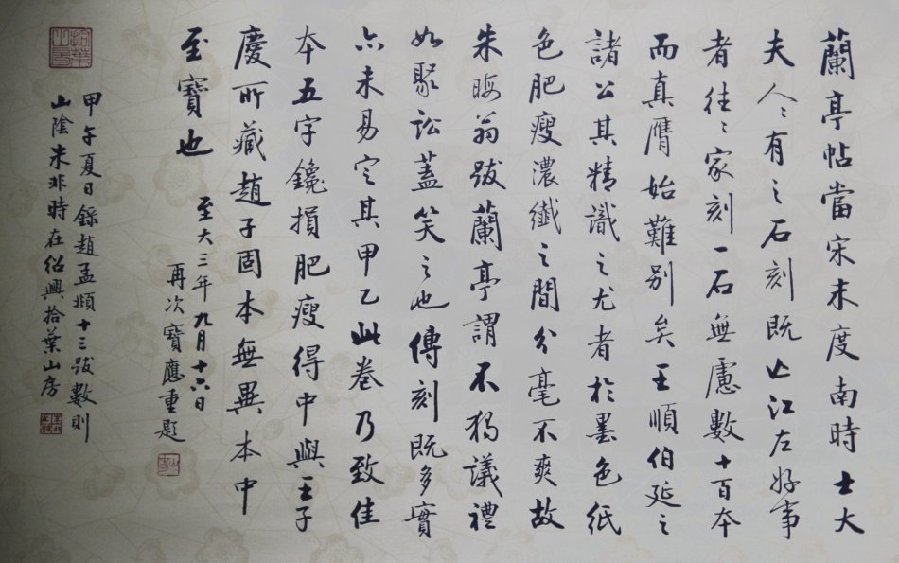 蘭亭帖當宋未度南時士大
夫人〻有之石刻既亡江左好事
者往〻家刻一石無慮數十百本
而真贋始難別矣王順伯延之
諸公其精識之尤者於墨色紙
色肥瘦濃纖之間分毫不爽故
朱晦翁跋蘭亭謂不獨議禮
如聚訟蓋笑之也傳刻既多實
亦未易定其甲乙此卷乃致佳
本五字鑱損肥瘦得中與王子
慶所藏趙子固本無異本中
至寶也
至大三年九月十六日
再次寶應重題
甲午夏日錄趙孟頫十三跋數則
山陰朱非時在紹興拾葉山房